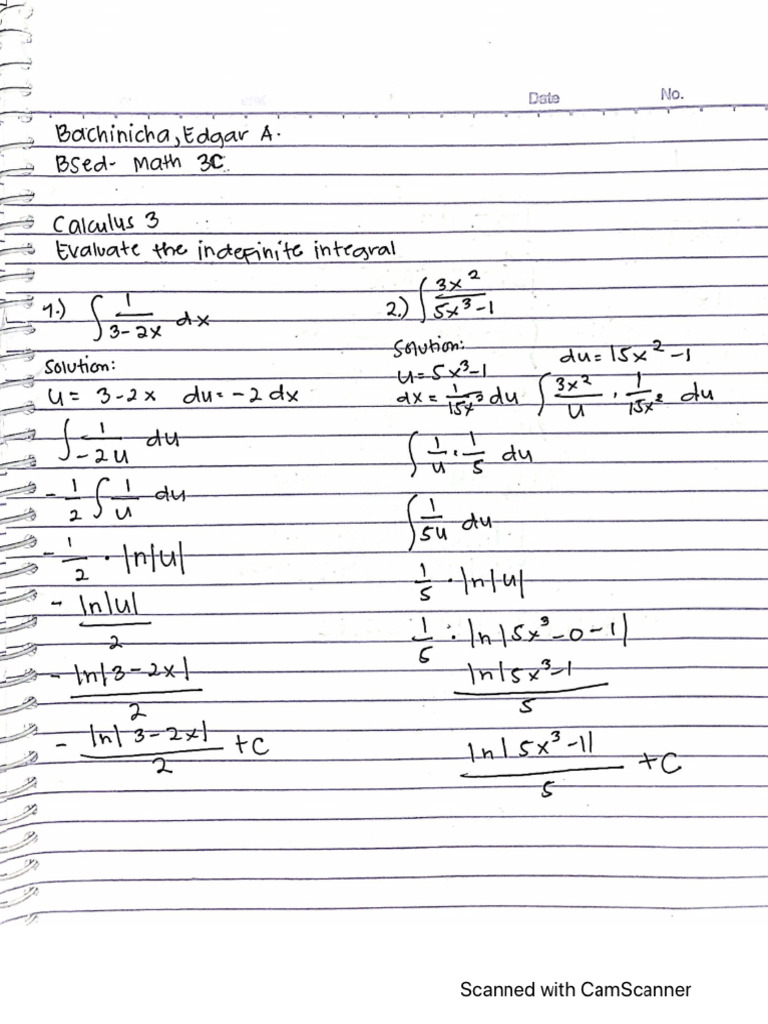 Date No.
Bachinicha, Edgar A.
BSed- Math 3C
Calculus 3
Evaluate the indefinite integral
1.) ∫ 1/(3-2x) dx
Solution:
u = 3-2x du = -2 dx
∫ 1/(-2u) du
- 1/2 ∫ 1/u du
- 1/2 · ln|u|
- ln|u|/2
- ln|3-2x|/2
- ln|3-2x|/2 + C
2.) ∫ 3x²/(5x³-1)
Solution:
u = 5x³-1 du = 15x²-1
dx = 1/15x² du ∫ 3x²/u · 1/15x² du
∫ 1/u · 1/5 du
∫ 1/5u du
1/5 · ln|u|
1/5 · ln|5x³-0-1|
ln|5x³-1/5
ln|5x³-1|/5 + C
Scanned with CamScanner